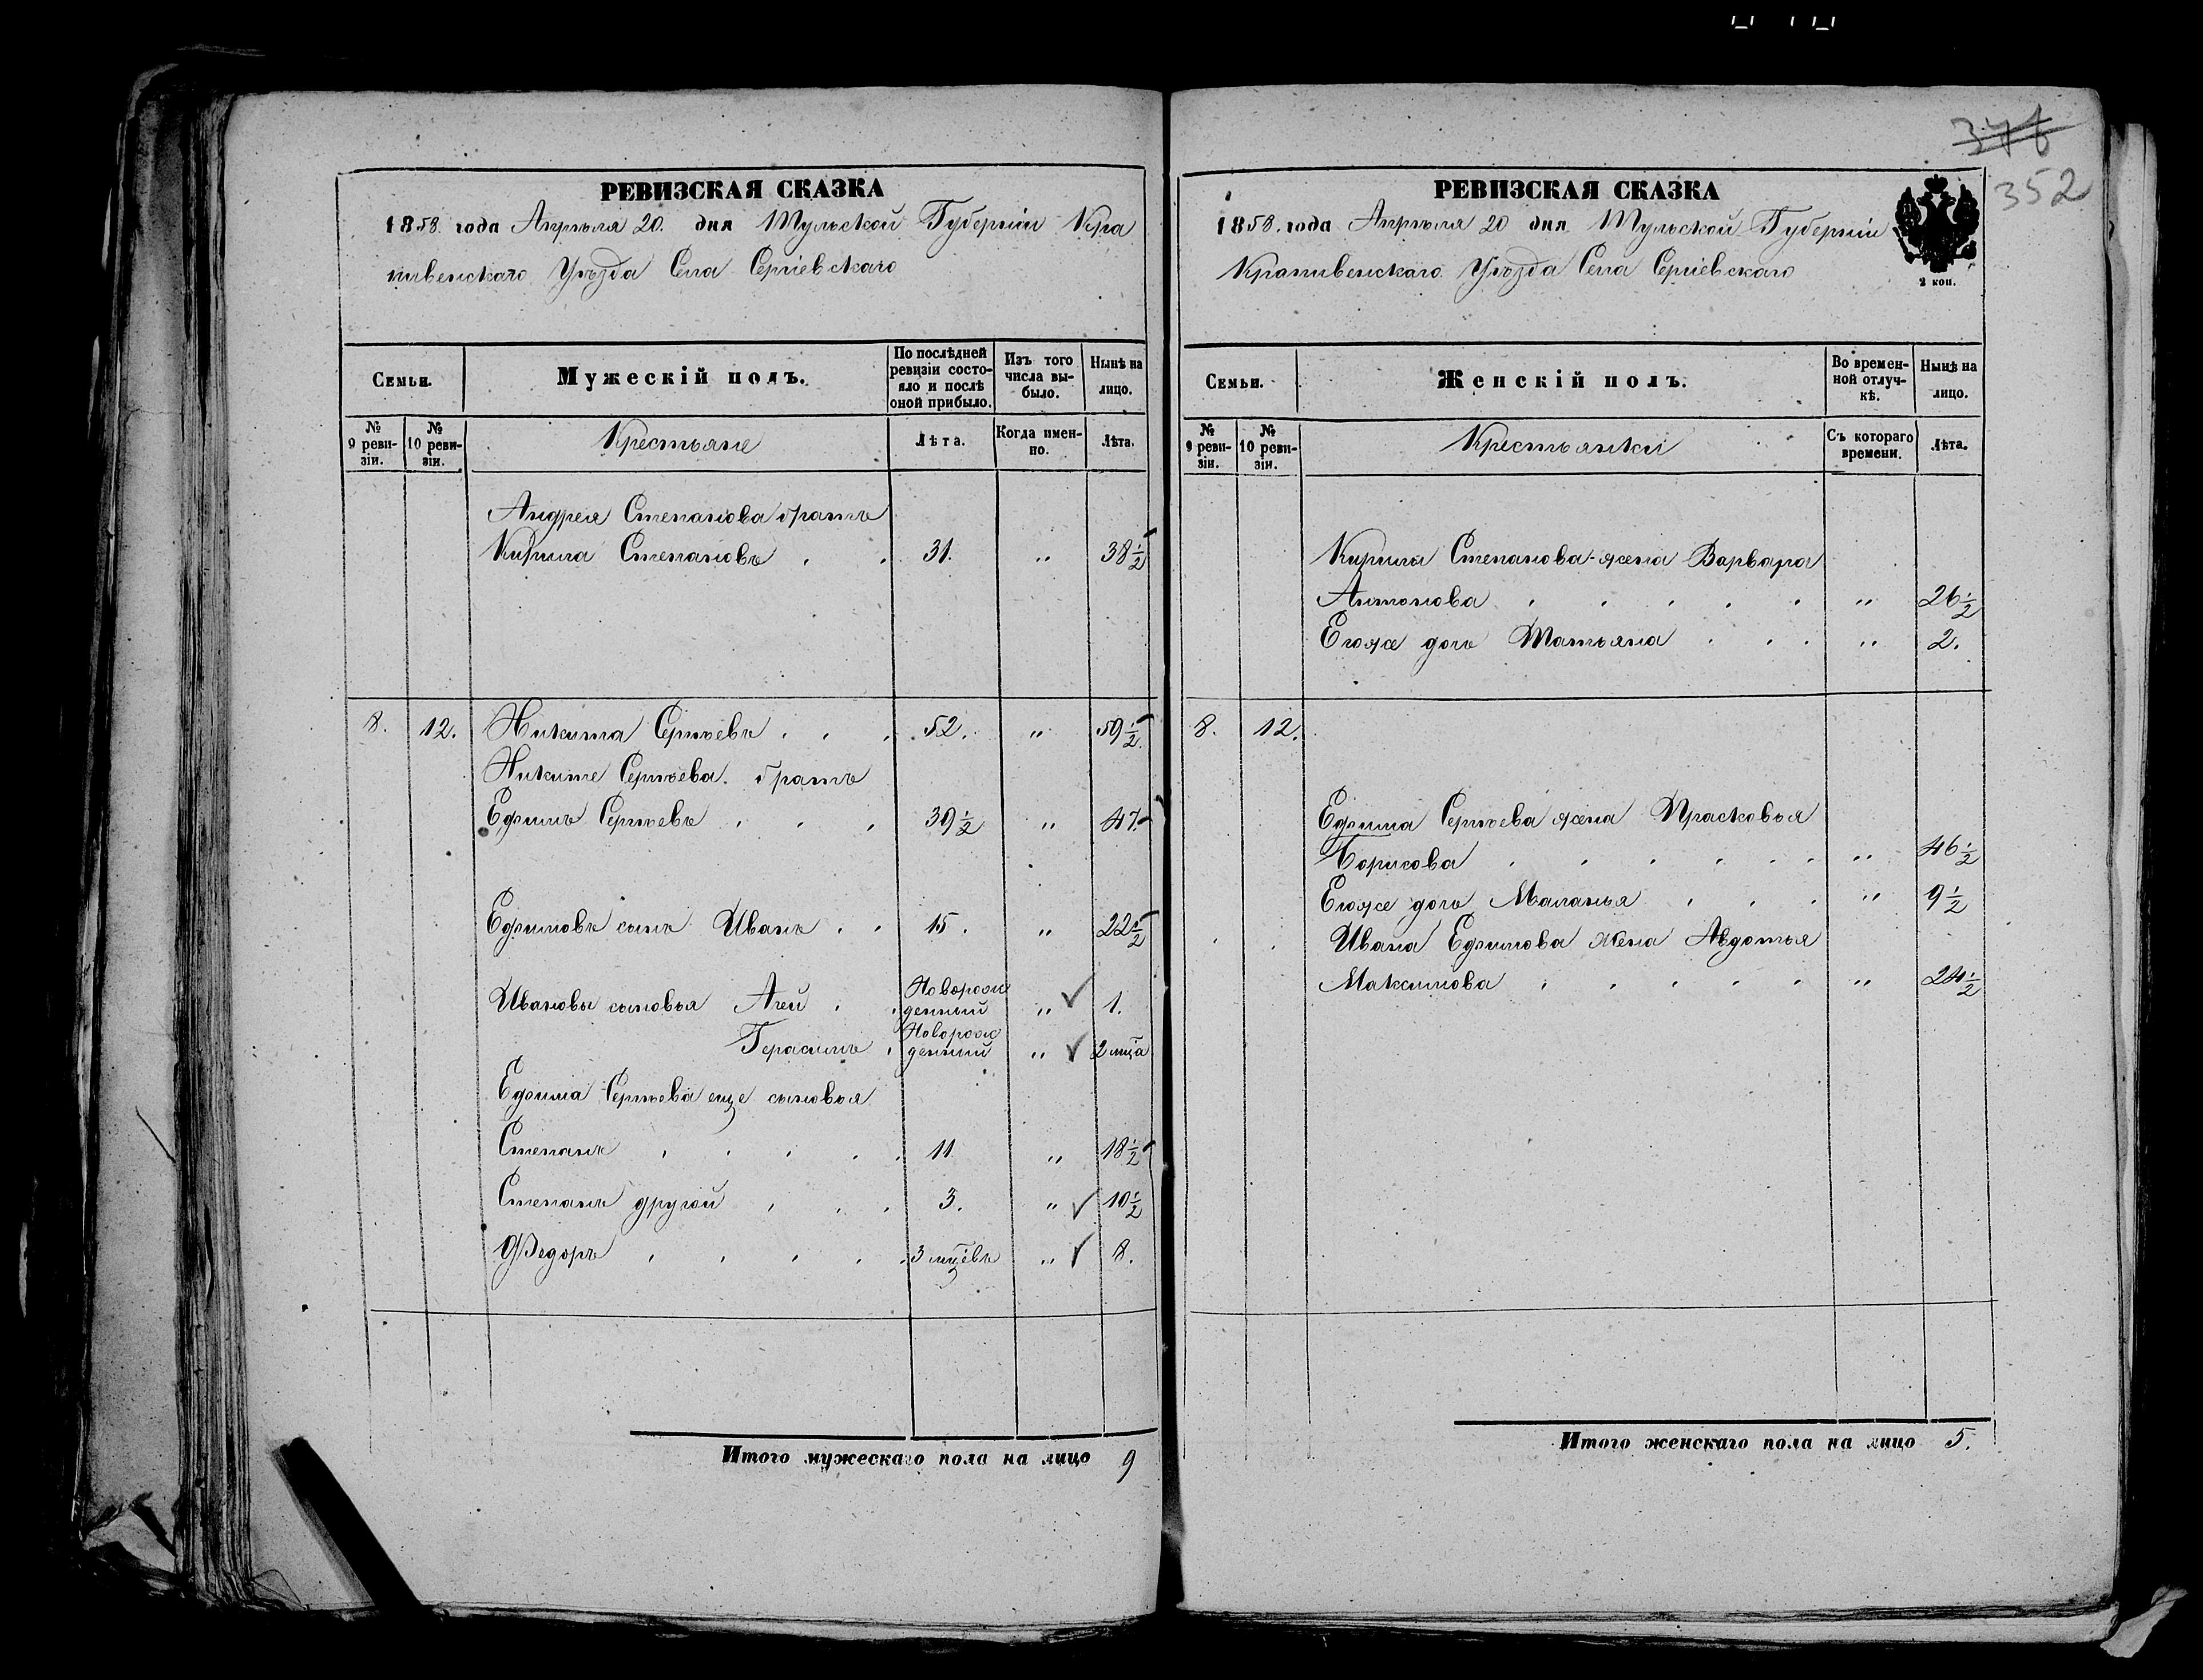 376
352
РЕВИЗСКАЯ СКАЗКА
1858. года Апрѣля 20. дня Тульской Губерніи Кра
пивенскаго Уѣзда Села Сергіевскаго
Семьи.
Мужескій полъ.
По послѣдней ревизіи состояло и послѣ оной прибыло.
Изъ того числа выбыло.
Нынѣ на лицо.
№ 9 ревизіи.
№ 10 ревизіи.
Крестьяне
Лѣта.
Когда именно.
Лѣта.
Андрея Степанова братъ
Кирила Степановъ . . 31. " 38 1/2
8. 12. Никита Сергѣевъ . . . 52. " 59 1/2.
Никите Сергѣева. братъ
Ефимъ Сергѣевъ . . . 39 1/2 " 47.
Ефимовъ сынъ Иванъ . . 15. " 22 1/2
Ивановы сыновья Агей . . Новорож
денный " ✓ 1.
Герасимъ . Новорож
денный " ✓ 2 мца
Ефима Сергѣева еще сыновья
Степанъ . . . . . 11. " 18 1/2
Степанъ другой . . . 3. " ✓ 10 1/2
Федоръ . . . . . 3 мцевъ " ✓ 8.
Итого мужескаго пола на лицо 9
РЕВИЗСКАЯ СКАЗКА
1858. года Апрѣля 20 дня Тульской Губерніи
Крапивенскаго Уѣзда Села Сергіевскаго
2 коп.
Семьи.
Женскій полъ.
Во временной отлучкѣ.
Нынѣ на лицо.
№ 9 ревизіи.
№ 10 ревизіи.
Крестьянки
Съ котораго времени.
Лѣта.
Кирилы Степанова жена Варвара
Антонова . . . . . " 26 1/2
Егоже дочь Татьяна . . . " 2.
8. 12.
Ефима Сергѣева жена Прасковья
Борисова . . . . . . " 46 1/2
Егоже дочь Маланья . . . " 9 1/2
Ивана Ефимова жена Авдотья
Максимова . . . . . " 24 1/2
Итого женскаго пола на лицо 5.